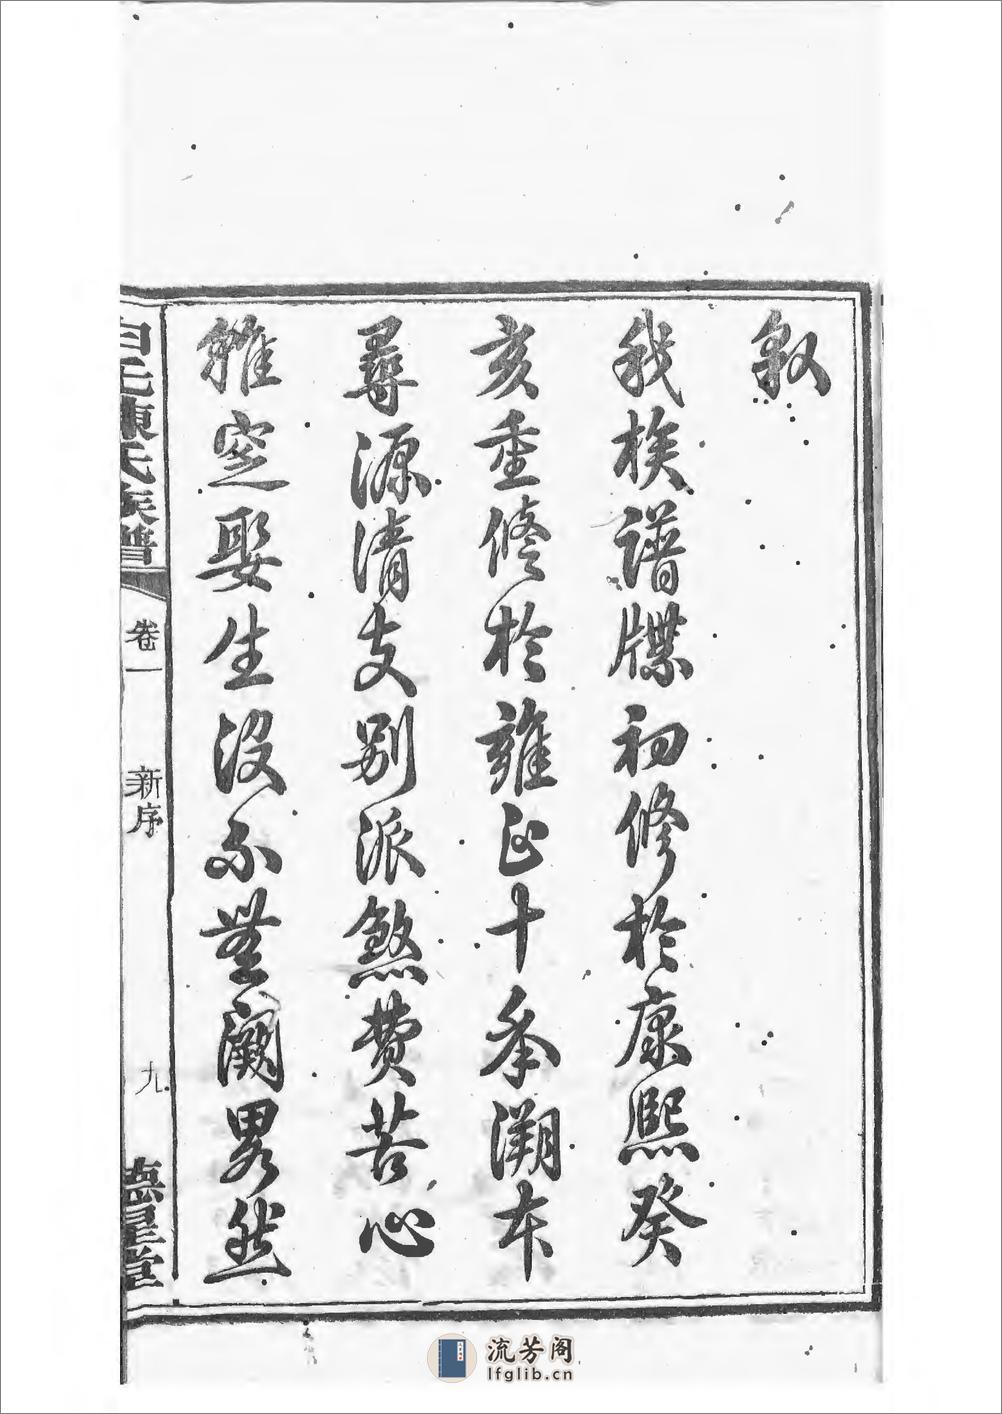 叙
我族譜牒初修於康熙癸
亥重修於雍正十年溯本
尋源清支别派煞費苦心
雖㝎娶生没不無闕畧然
陳氏族譜
卷一
新序
九
德星堂
流芳阁
lfglib.cn